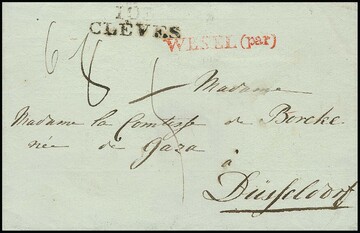 103
CLÈVES
WESEL (par)
68
Madame
Madame la Comtesse de Borcke
née de Gaza
à
Düsseldorf